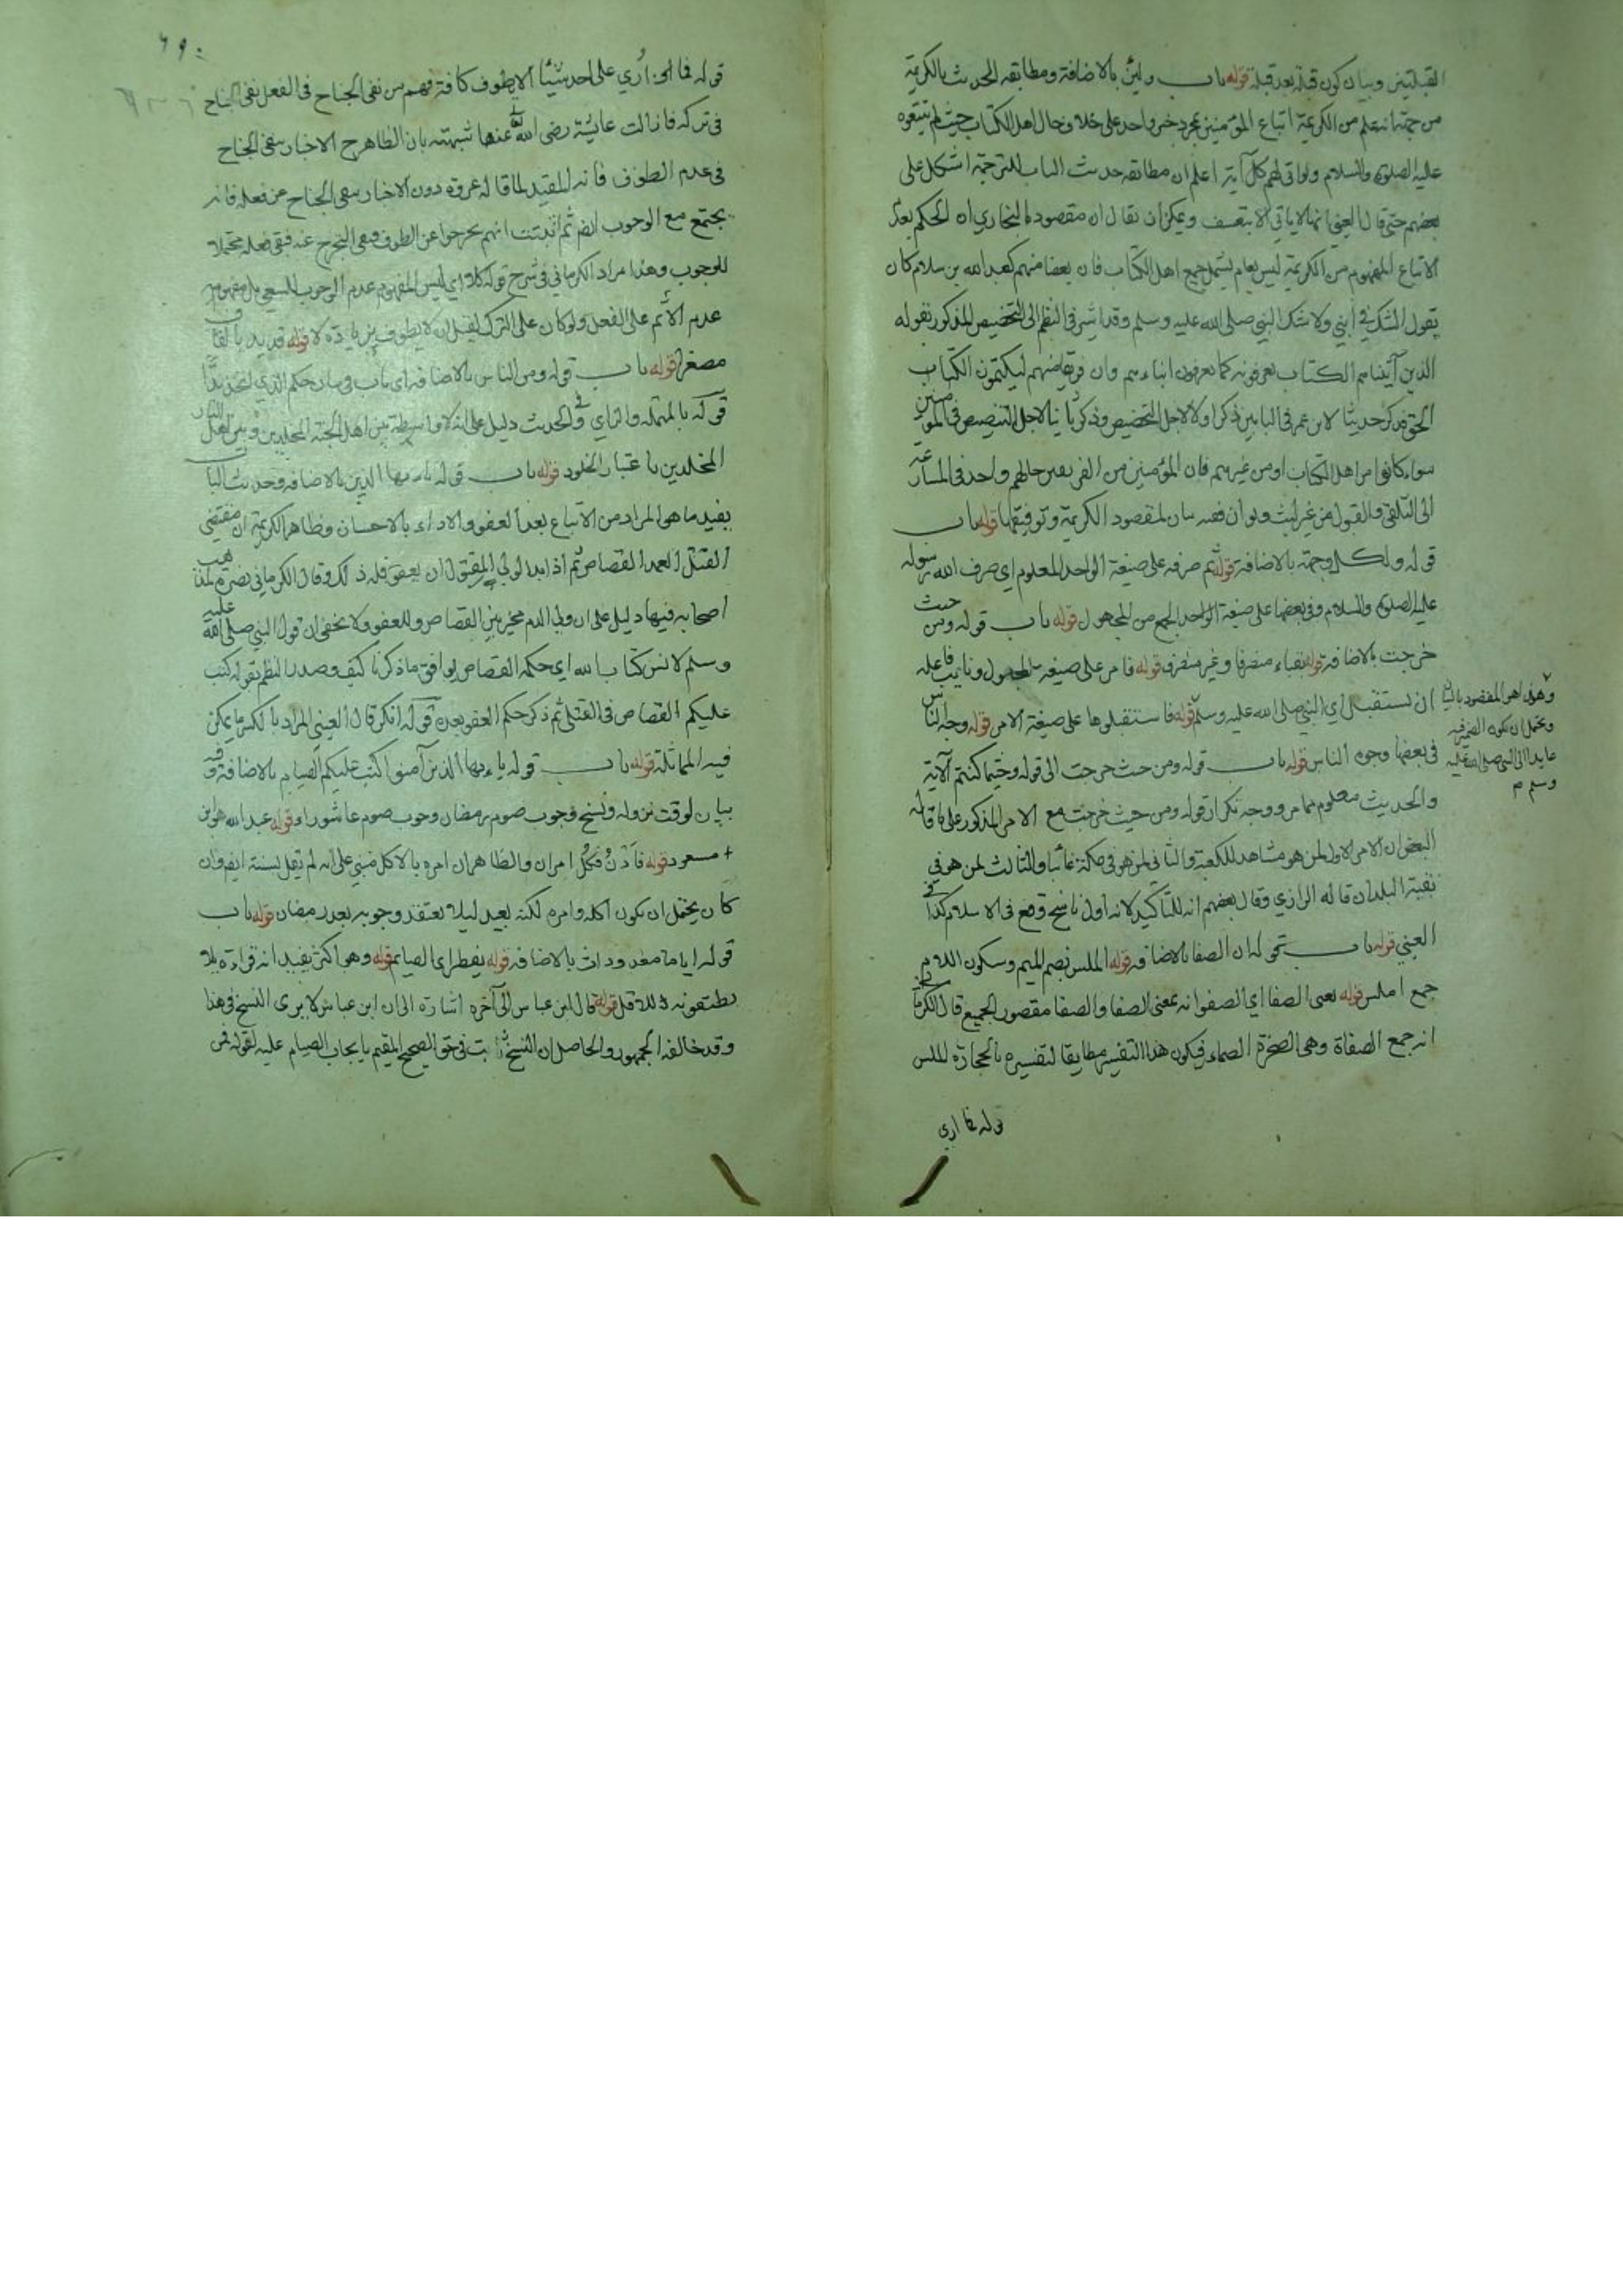 القبلتين وبيان كون قبلة بعد قبلة قوله باب ولئن بالاضافة ومطابقه الحديث بالكريمة
من جهة انه علم من الكريمة اتباع المؤمنين بمجرد خبر واحد على خلاف حال اهل الكتاب حيث لم يتبعوه
عليه الصلوة والسلام ولو اتى لهم كل آية اعلم ان مطابقه حديث الباب للترجمة اشكل على
بعضهم حتى قال العيني انها لا ياتي الا بتعسف ويمكن ان يقال ان مقصود البخاري ان الحكم بعدم
الاتباع المفهوم من الكريمة ليس بعام يشمل جميع اهل الكتاب فان بعضا منهم كعبد الله بن سلام كان
يقول اشك في ابني ولا اشك النبي صلى الله عليه وسلم وقد اشير في النظم الى التخصيص المذكور بقوله
الذين آتيناهم الكتاب يعرفونه كما يعرفون ابناءهم وان فريقا منهم ليكتمون الكتاب
الحق فذكر حديثا لابن عمر في البابين ذكر اولا لاجل التخصيص وذكر ثانيا لاجل التنصيص في المؤمنين
سواء كانوا من اهل الكتاب او من غيرهم فان المؤمنين من الفريقين حالهم واحد في المسارعة
الى التلقي والقبول من غير لبث وتوان ففيه بيان لمقصود الكريمة وتوفيقها قوله باب
قوله ولكل وجهة بالاضافة قوله ثم صرفه على صيغة الواحد المعلوم اي صرف الله رسوله
عليه الصلوة والسلام وفي بعضها على صيغة الواحد الجمع من المجهول قوله باب قوله ومن حيث
خرجت بالاضافة قوله بقباء منصرفا وغير منصرف قوله فامر على صيغة المجهول ونايب فاعله
ان يستقبل اي النبي صلى الله عليه وسلم قوله فاستقبلوها على صيغة الامر قوله وجه الناس
وهذا هو المقصود بالباب
ويحتمل ان يكون الضمير فيه
عايدا الى النبي صلى الله عليه
وسلم م
في بعضها وجوه الناس قوله باب قوله ومن حيث خرجت الى قوله وحيثما كنتم الآية
والحديث معلوم مما مر ووجه تكرار قوله ومن حيث خرجت مع الامر المذكور على ما قاله
البعض ان الامر الاول لمن هو مشاهد للكعبة والثاني لمن هو في مكة غائبا والثالث لمن هو في
بقية البلدان قاله الرازي وقال بعضهم انه للتاكيد لانه اول ناسخ وقع في الاسلام كذا في
العيني قوله باب قوله ان الصفا بالاضافة قوله الملس بضم الميم وسكون اللام
جمع املس قوله يعني الصفا اي الصفوانه بمعنى الصفا والصفا مقصور الجميع قال الكرماني
انه جمع الصفاة وهي الصخرة الصماء فيكون هذا التفسير مطابقا لتفسيره بالحجارة الملس
قوله فما اري
٦٩٠
قوله فما ارى اُري على احد شيئا الا يطوف كافة فهم من نفي الجناح في الفعل نفي الجناح
في تركه فازالت عائشة رضي الله تعالى عنها شبهته بان الظاهر ح الاخبار بنفي الجناح
في عدم الطوف فانه المفيد لما قاله عروة دون الاخبار بنفي الجناح عن فعله فانه
يجتمع مع الوجوب ايضا ثم اثبتت انهم تحرجوا عن الطوف ونفي التحرج عنه فبقي فعله محتملا
للوجوب وهذا مراد الكرماني في شرح قوله كلا اي ليس المفهوم عدم الوجوب للسعي بل مفهومه
عدم الاثم على الفعل ولو كان على الترك لقيل ان لا يطوف بزيادة لا قوله قديد بالقاف
مصغرا قوله باب قوله ومن الناس بالاضافة اي باب في بيان حكم الذي اتخذ ندا
قوله بالمهملة والزاي وفي الحديث دليل على انه لا واسطة بين اهل الجنة المخلدين وبين اهل النار
المخلدين باعتبار الخلود قوله باب قوله يا ايها الذين بالاضافة وحديث الباب
يفيد ما هو المراد من الاتباع بعد العفو والاداء بالاحسان وظاهر الكريمة ان مقتضى
القتل العمد القصاص ثم اذا بدا لولي المقتول ان يعفو فله ذلك وقال الكرماني نصرة لمذهب
اصحابه فيها دليل على ان ولي الدم مخير بين القصاص والعفو ولا يخفى ان قول النبي صلى الله عليه
وسلم لانس كتاب الله اي حكمه القصاص يوافق ما ذكرنا كيف وصدر النظم بقوله كتب
عليكم القصاص في القتلى ثم ذكر حكم العفو بعده قوله انكر قال العيني المراد بالكسر ما يمكن
فيه المماثلة قوله باب قوله يا ايها الذين آمنوا كتب عليكم الصيام بالاضافة وفيه
بيان لوقت نزوله ونسخ وجوب صوم رمضان وجوب صوم عاشوراء قوله عبد الله هو ابن
مسعود قوله فاَدْنُ فكُلْ امران والظاهر ان امره بالاكل مبني على انه لم يقل بسنة ايضا وان
كان يحتمل ان يكون اكله وامره لكنه بعيد ليلا يعتقد وجوبه بعد رمضان قوله باب
قوله اياما معدودات بالاضافة قوله يفطر اي الصيام قوله وهو اكثر يفيد ان قراءة بلا
يطيقونه للاقل قوله قال ابن عباس الى آخره اشارة الى ان ابن عباس لا يرى النسخ في هذا
وقد خالفه الجمهور والحاصل ان النسخ ثابت في حق الصحيح المقيم بايجاب الصيام عليه لقوله فمن